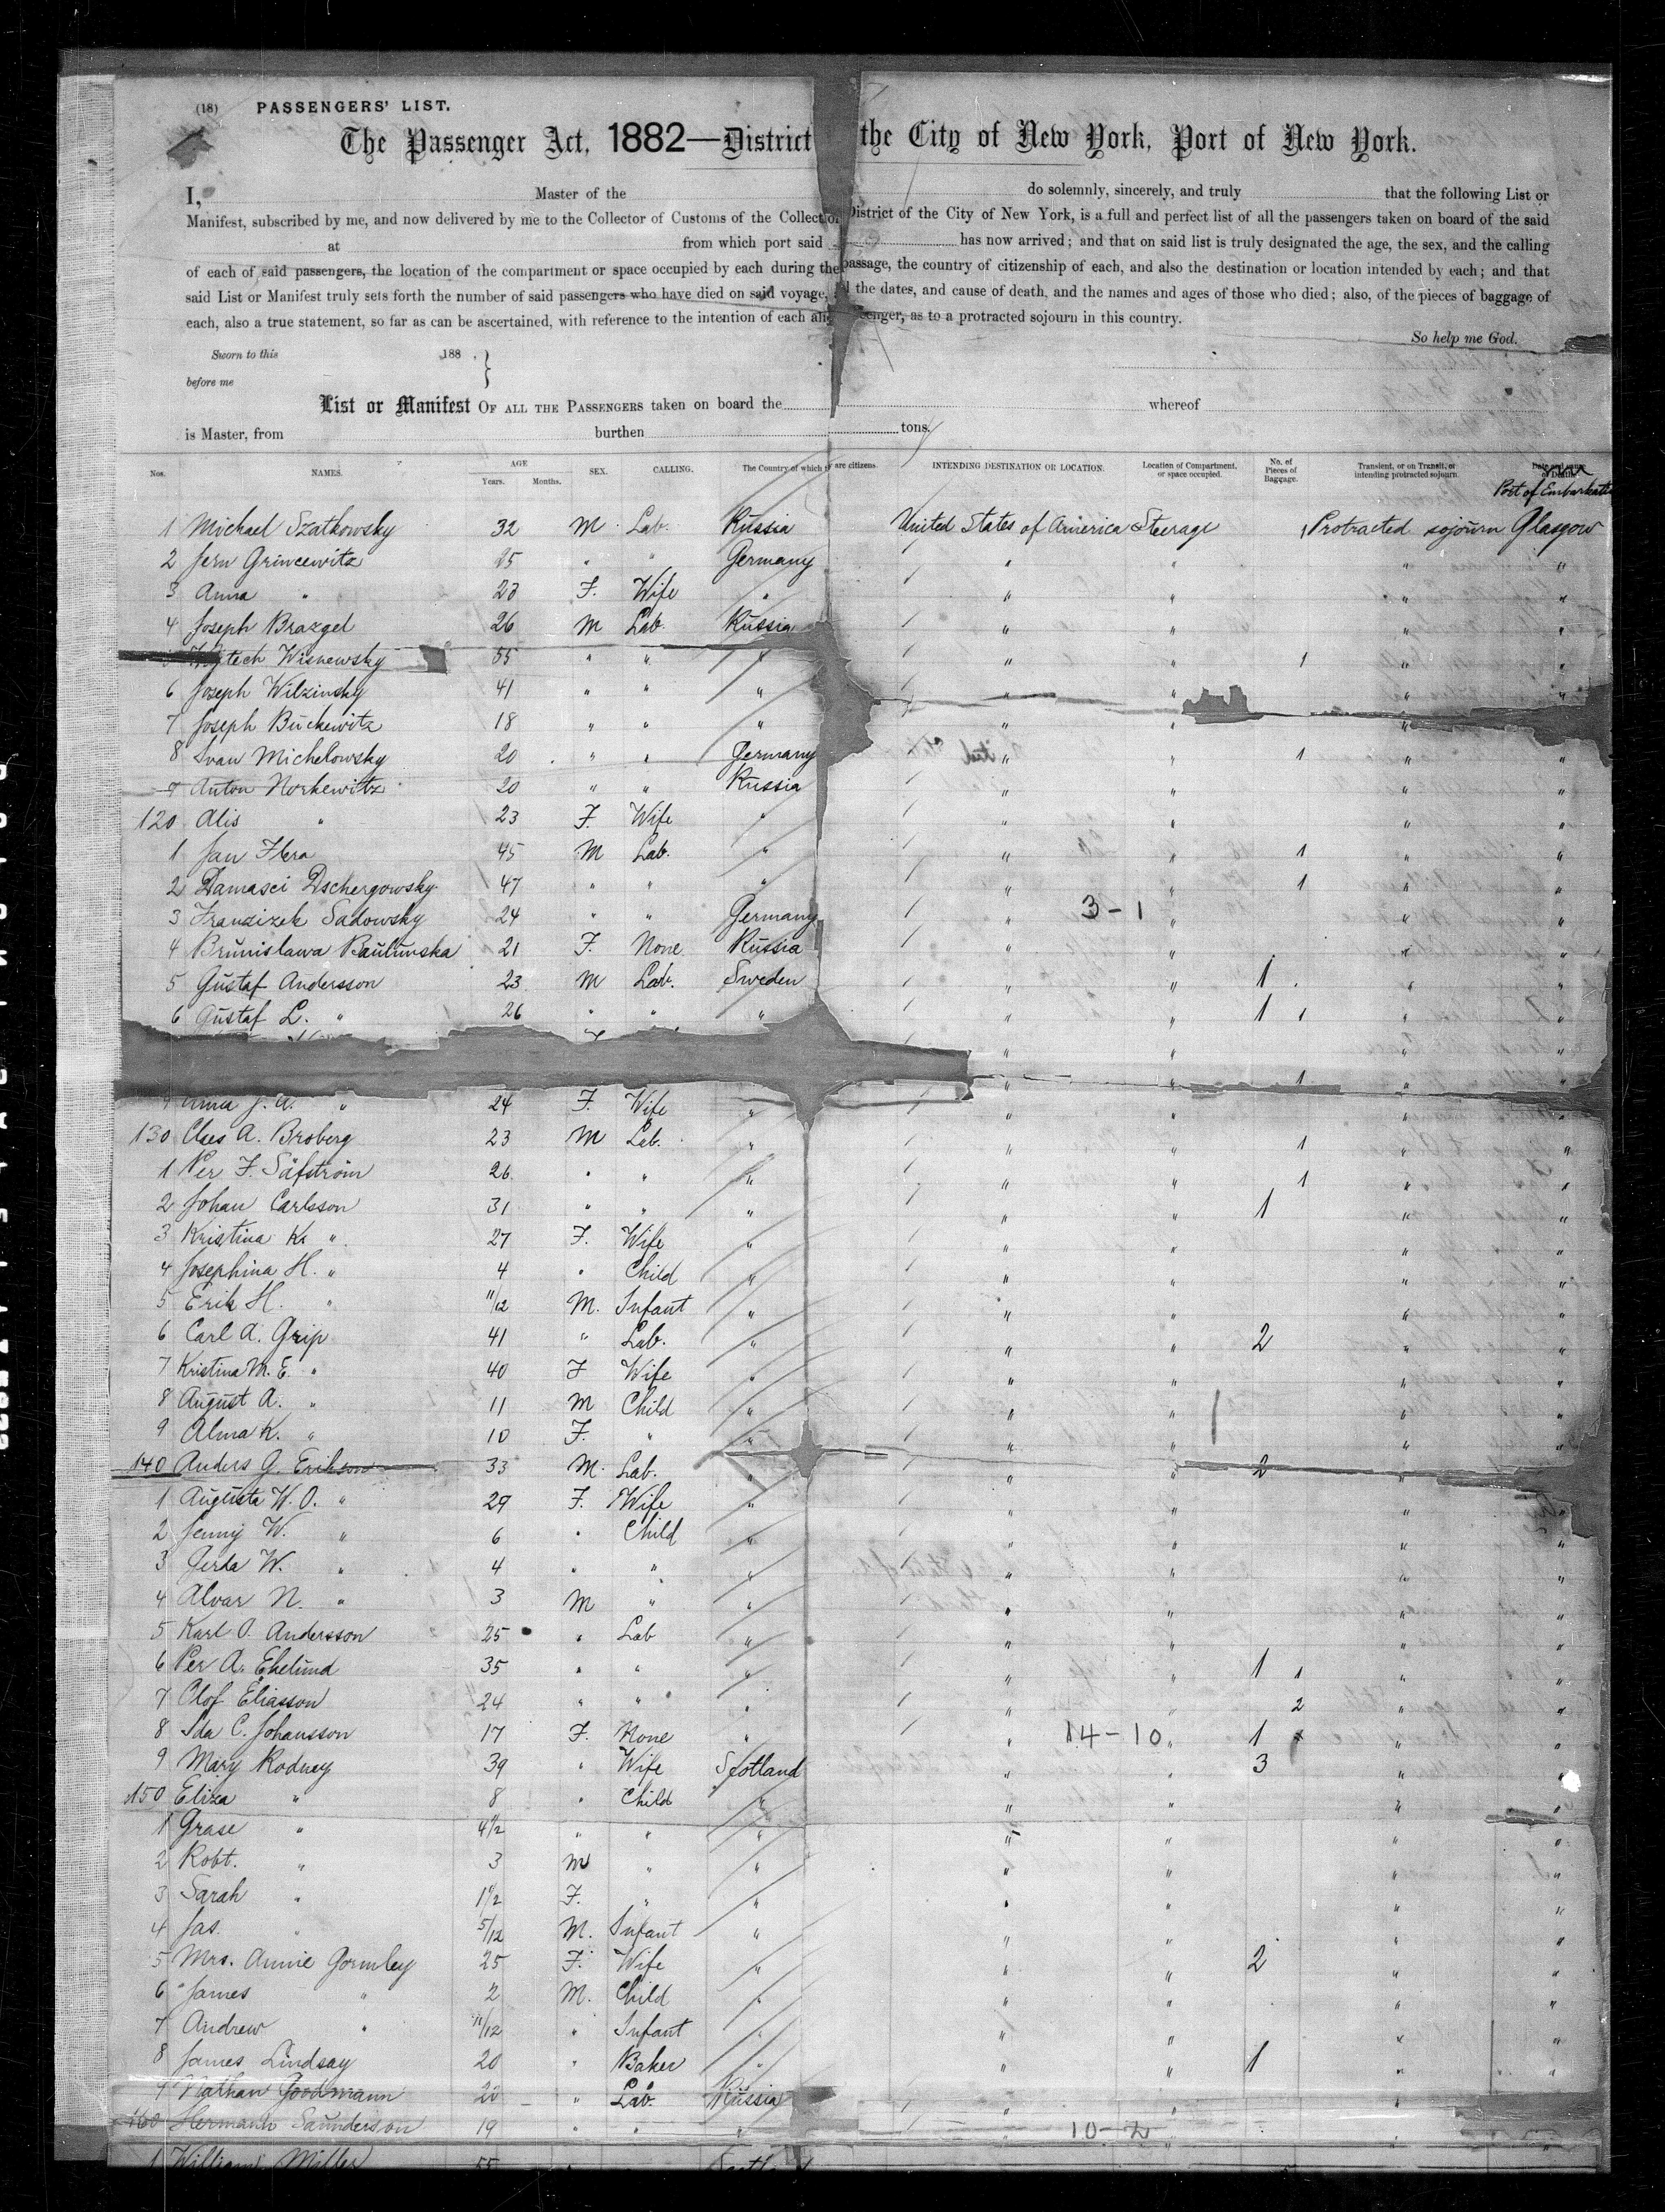 (18) PASSENGERS' LIST.
The Passenger Act, 1882—District the City of New York, Port of New York.
I, Master of the do solemnly, sincerely, and truly that the following List or
Manifest, subscribed by me, and now delivered by me to the Collector of Customs of the Collection District of the City of New York, is a full and perfect list of all the passengers taken on board of the said
at from which port said has now arrived; and that on said list is truly designated the age, the sex, and the calling
of each of said passengers, the location of the compartment or space occupied by each during the passage, the country of citizenship of each, and also the destination or location intended by each; and that
said List or Manifest truly sets forth the number of said passengers who have died on said voyage, the dates, and cause of death, and the names and ages of those who died; also, of the pieces of baggage of
each, also a true statement, so far as can be ascertained, with reference to the intention of each as to a protracted sojourn in this country.
So help me God.
Sworn to this 188 . }
before me
List or Manifest OF ALL THE PASSENGERS taken on board the whereof
is Master, from burthen tons.
Nos. NAMES. AGE Years. Months. SEX. CALLING. The Country of which they are citizens. INTENDING DESTINATION OR LOCATION. Location of Compartment, or space occupied. No. of Pieces of Baggage. Transient, or on Transit, or intending protracted sojourn. Date and cause of Death.
Port of Embarkation
1 Michael Szatkowsky 32 M Lab. Russia United States of America Steerage 1 Protracted sojourn Glasgow
2 Jern Grincewitz " " Germany " " " "
3 Anna " 23 F. Wife " " " " "
4 Joseph Brazgel 26 M Lab. Russia " " " "
Wisnewsky 55 " " " " " 1 " "
6 Joseph Wilzinsky 41 " " " " " " "
7 Joseph Buckewitz 18 " " " " " " "
8 Ivan Michelowsky 20 " " Germany " " 1 " "
9 Anton Norkewitz 20 " " Russia " " " "
120 Alis " 23 F. Wife " " " " "
1 Jan Flera 45 M Lab. " " " 1 " "
2 Damasci Dschergowsky 47 " " " " " 1 " "
3 Franzizek Sadowsky 24 " " Germany " 3-1 " " "
4 Brunislawa Baulunska 21 F. None Russia " " " "
5 Gustaf Andersson 23 M Lab. Sweden " " 1 " "
6 Gustaf L. " 26 " " " " " 1 1 " "
" " " "
" " 1 " "
9 Anna J. A. " 24 F. Wife " " " " "
130 Claes A. Broberg 23 M Lab. " " " 1 " "
1 Per F. Säfström 26 " " " " " 1 " "
2 Johan Carlsson 31 " " " " " 1 " "
3 Kristina K. " 27 F. Wife " " " " "
4 Josephina H. " 4 " Child " " " " "
5 Erik H. " 11/12 M. Infant " " " " "
6 Carl A. Grip 41 " Lab. " " " 2 " "
7 Kristina M. E. " 40 F Wife " " " " "
8 August A. " 11 M Child " " " " "
9 Alma K. " 10 F. " " " " " "
140 Anders G. Erikson 33 M. Lab. " " " 2 " "
1 Augusta W. O. " 29 F. Wife " " " " "
2 Jenny W. " 6 " Child " " " " "
3 Gerda W. " 4 " " " " " " "
4 Alvar N. " 3 M " " " " " "
5 Karl O. Andersson 25 " Lab " " " " "
6 Per A. Ekelund 35 " " " " " 1 1 " "
7 Olof Eliasson 24 " " " " " 2 " "
8 Ida C. Johansson 17 F. None " " 14-10 " 1 " "
9 Mary Rodney 39 " Wife Scotland " " 3 " "
150 Eliza " 8 " Child " " " " "
1 Grase " 4 1/2 " " " " " " "
2 Robt. " 3 M " " " " " "
3 Sarah " F. " " " " " "
4 Jas. " 5/12 M. Infant " " " " "
5 Mrs. Annie Gormley 25 F. Wife " " " 2 " "
6 James " 2 M. Child " " " " "
7 Andrew " 11/12 " Infant " " " " "
8 James Lindsay 20 " Baker " " " 1 " "
9 Nathan Goodmann 20 " Lab. Russia " " " "
160 Hermann Saunderson 19 " " " " 10-2 " "
1 William Miller 55